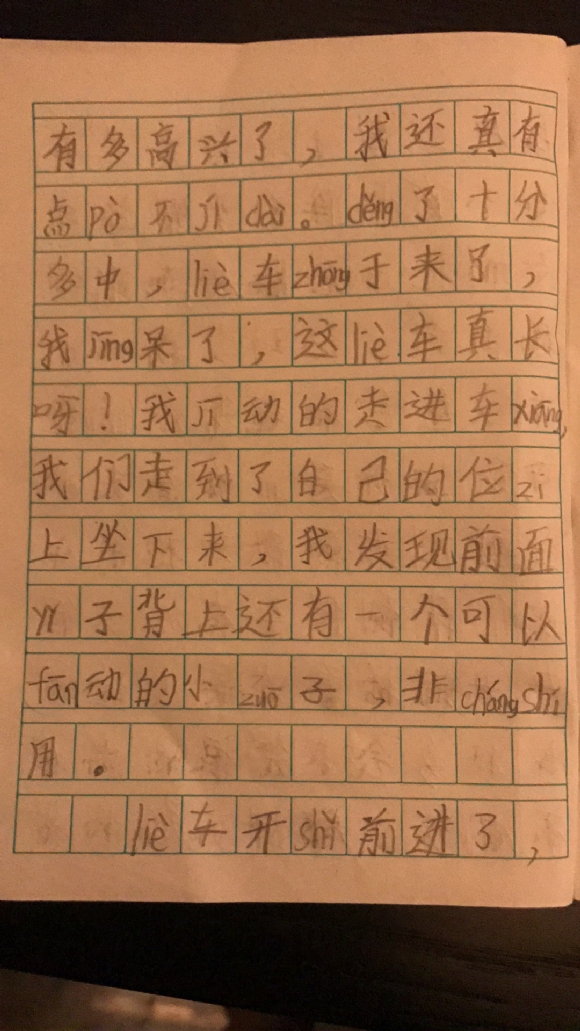 有多高兴了，我还真有
点pò不jí dài。děng了十分
多中，liè车zhōng于来了，
我jīng呆了，这liè车真长
呀！我jī动的走进车xiāng，
我们走到了自己的位zi
上坐下来，我发现前面
yǐ子背上还有一个可以
fān动的小zuō子，非cháng shí
用。
liè车开shǐ前进了，